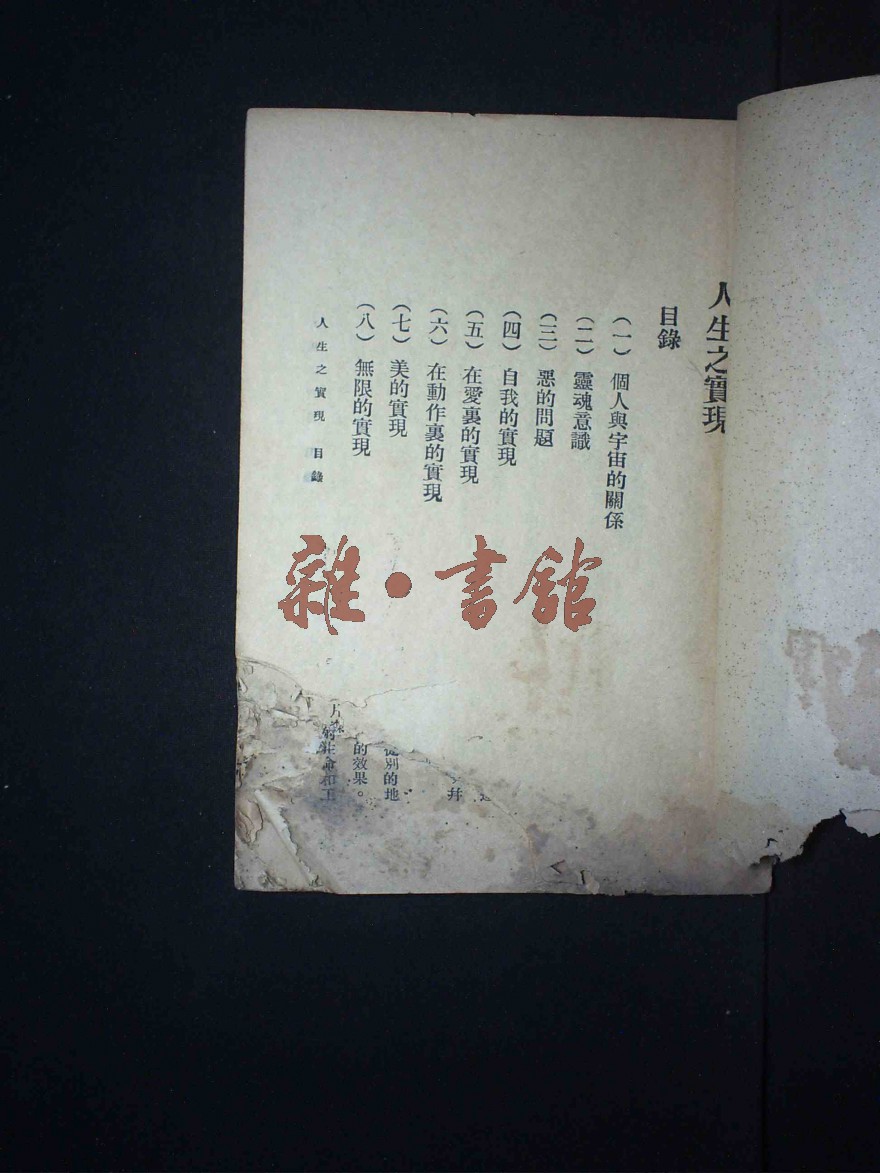 人生之實現
目錄
(一) 個人與宇宙的關係
(二) 靈魂意識
(三) 惡的問題
(四) 自我的實現
(五) 在愛裏的實現
(六) 在動作裏的實現
(七) 美的實現
(八) 無限的實現
人生之實現 目錄
雜·書館
幷
從別的地
的效果。